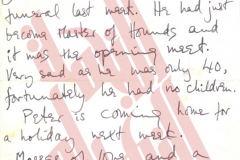 funeral last week. He had just
become Master of Hounds and
it was the opening meet.
Very sad as he was only 40,
fortunately he had no children.
Peter is coming home for
a holiday next week.
Masses of love, and a